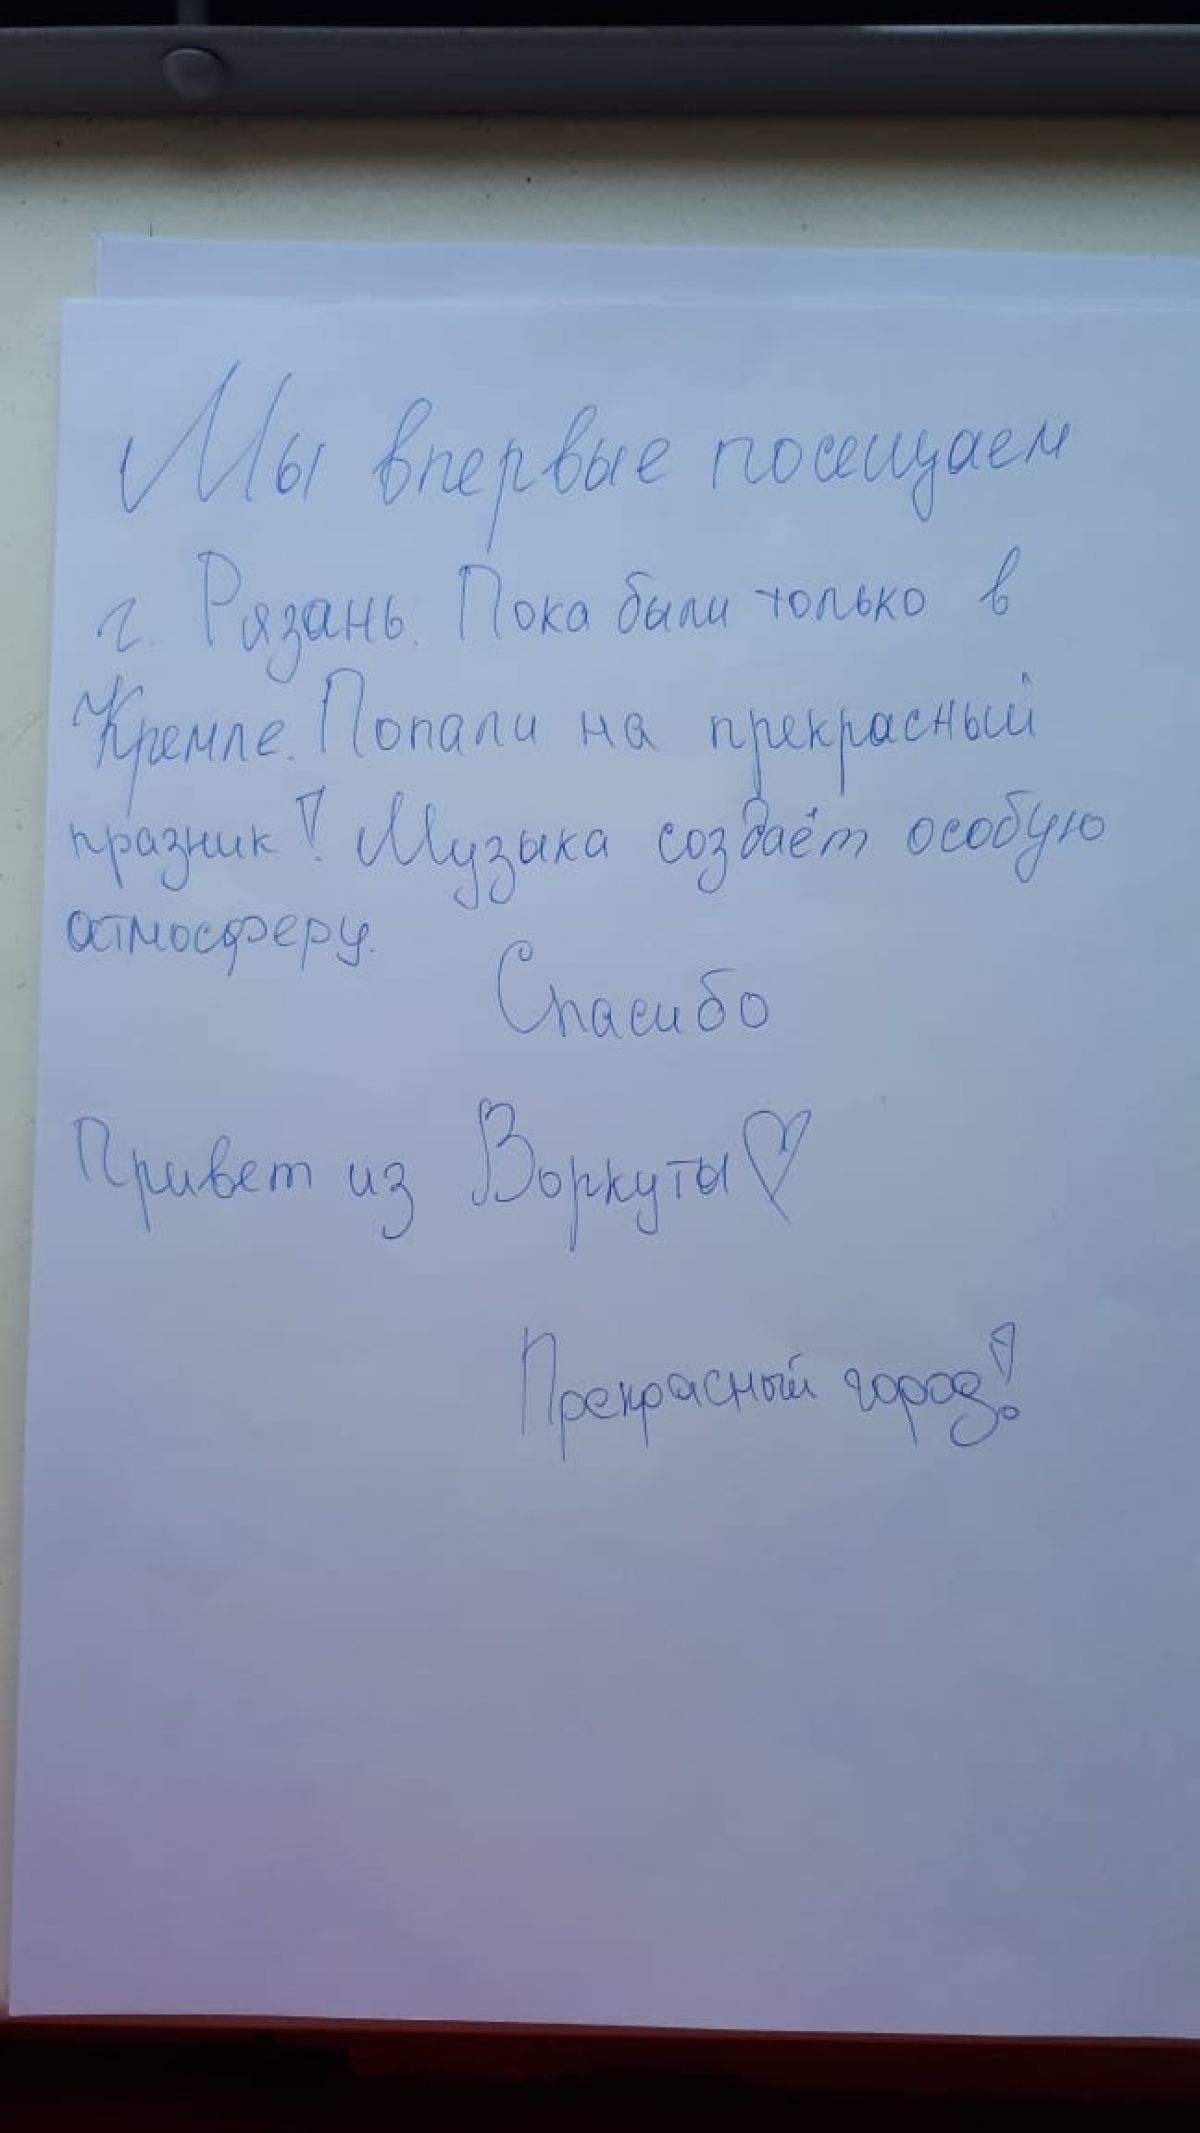 Мы впервые посещаем
г. Рязань. Пока были только в
Кремле. Попали на прекрасный
празник! Музыка создаёт особую
атмосферу.
Спасибо
Привет из Воркуты♡
Прекрасный город!